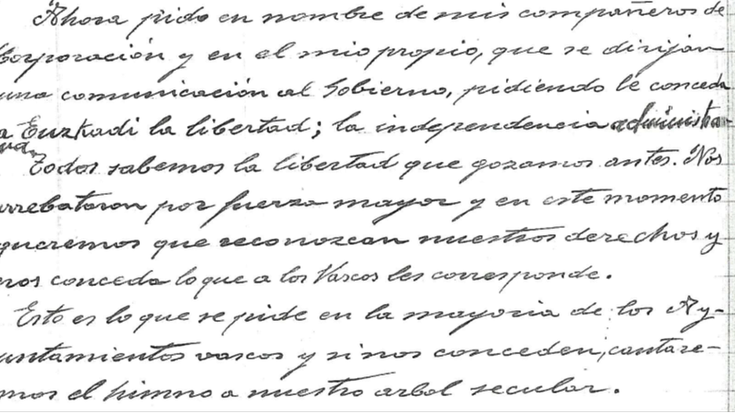 Ahora pido en nombre de mis compañeros de
Corporación y en el mio propio, que se dirijan
una comunicación al Gobierno, pidiendo le conceda
a Euzkadi la libertad; la independencia administra-
tiva.
Todos sabemos la libertad que gozamos antes. Nos
arrebataron por fuerza mayor y en este momento
queremos que reconozcan nuestros derechos y
nos conceda lo que a los Vascos les corresponde.
Esto es lo que se pide en la mayoria de los Ay-
untamientos vascos y si nos conceden, cantare-
mos el himno a nuestro arbol secular.